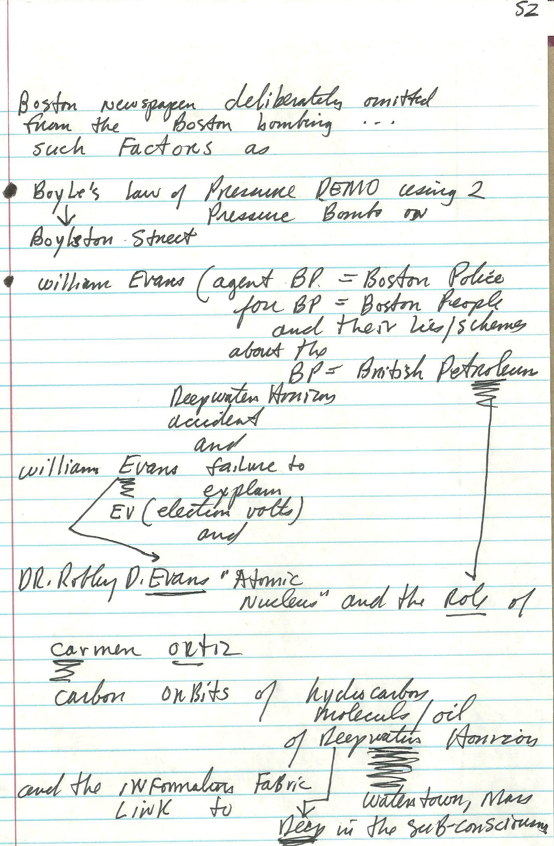 52
Boston Newspaper deliberately omitted
from the Boston bombing ...
such Factors as
• Boyle's Law of Pressure DEMO using 2
Pressure Bombs on
Boylston Street
• William Evans (agent BP = Boston Police
for BP = Boston People
and their lies/schemes
about the
BP = British Petroleum
Deepwater Horizon
accident
and
William Evans failure to
explain
EV (election volts)
and
DR. Robley D. Evans "Atomic
Nucleus" and the Role of
Carmen ORTIZ
carbon ORBits of hydrocarbon
molecule/oil
of Deepwater Horizon
and the iNFormation Fabric
Link to
Watertown, Mass
Deep in the sub-conscious